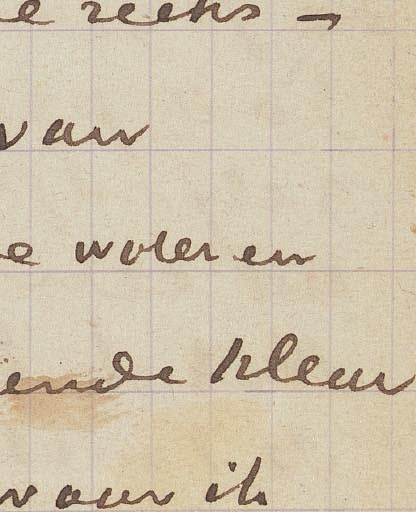 e reeks –
van
e woler en
ende kleur
waar ik